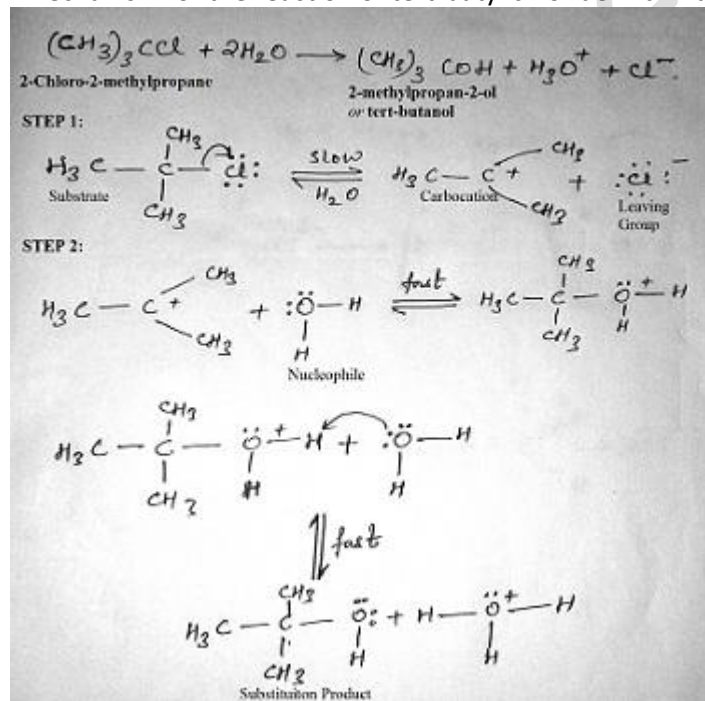 (CH3)3CCl + 2H2O ⟶ (CH3)3 COH + H3O+ + Cl-.
2-Chloro-2-methylpropane
2-methylpropan-2-ol
or tert-butanol
STEP 1:
CH3
H3C — C — Cl: ⇌ slow H2O H3C — C+ CH3 + :Cl:-
CH3 CH3
Substrate Carbocation Leaving
Group
STEP 2:
CH3 CH3
H3C — C+ + :O — H ⇌ fast H3C — C — O+ — H
CH3 H CH3 H
Nucleophile
CH3
H3C — C — O+ — H + :O — H
CH3 H H
fast
CH3
H3C — C — O: + H — O+ — H
CH3 H H
Substituiton Product